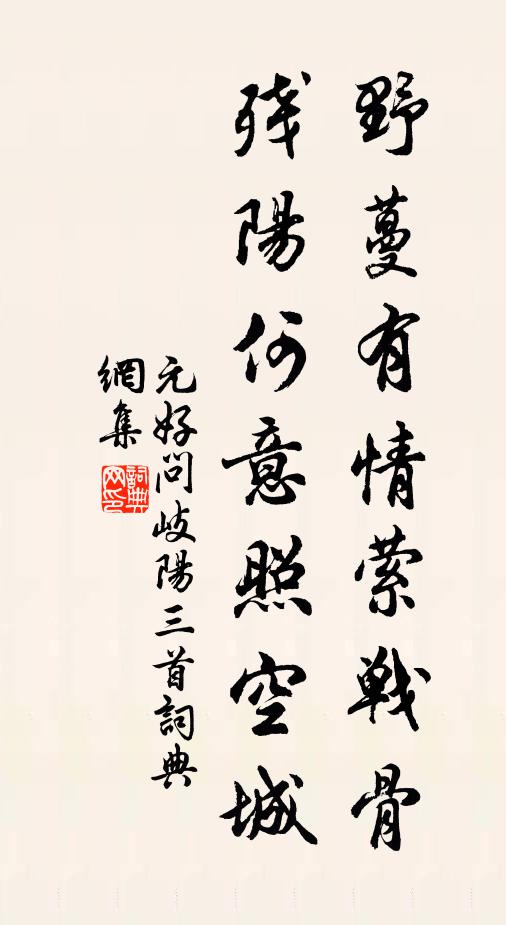 野蔓有情萦戰骨
残陽何意照空城
元好问岐陽三首詞典
網集
詞典
网印